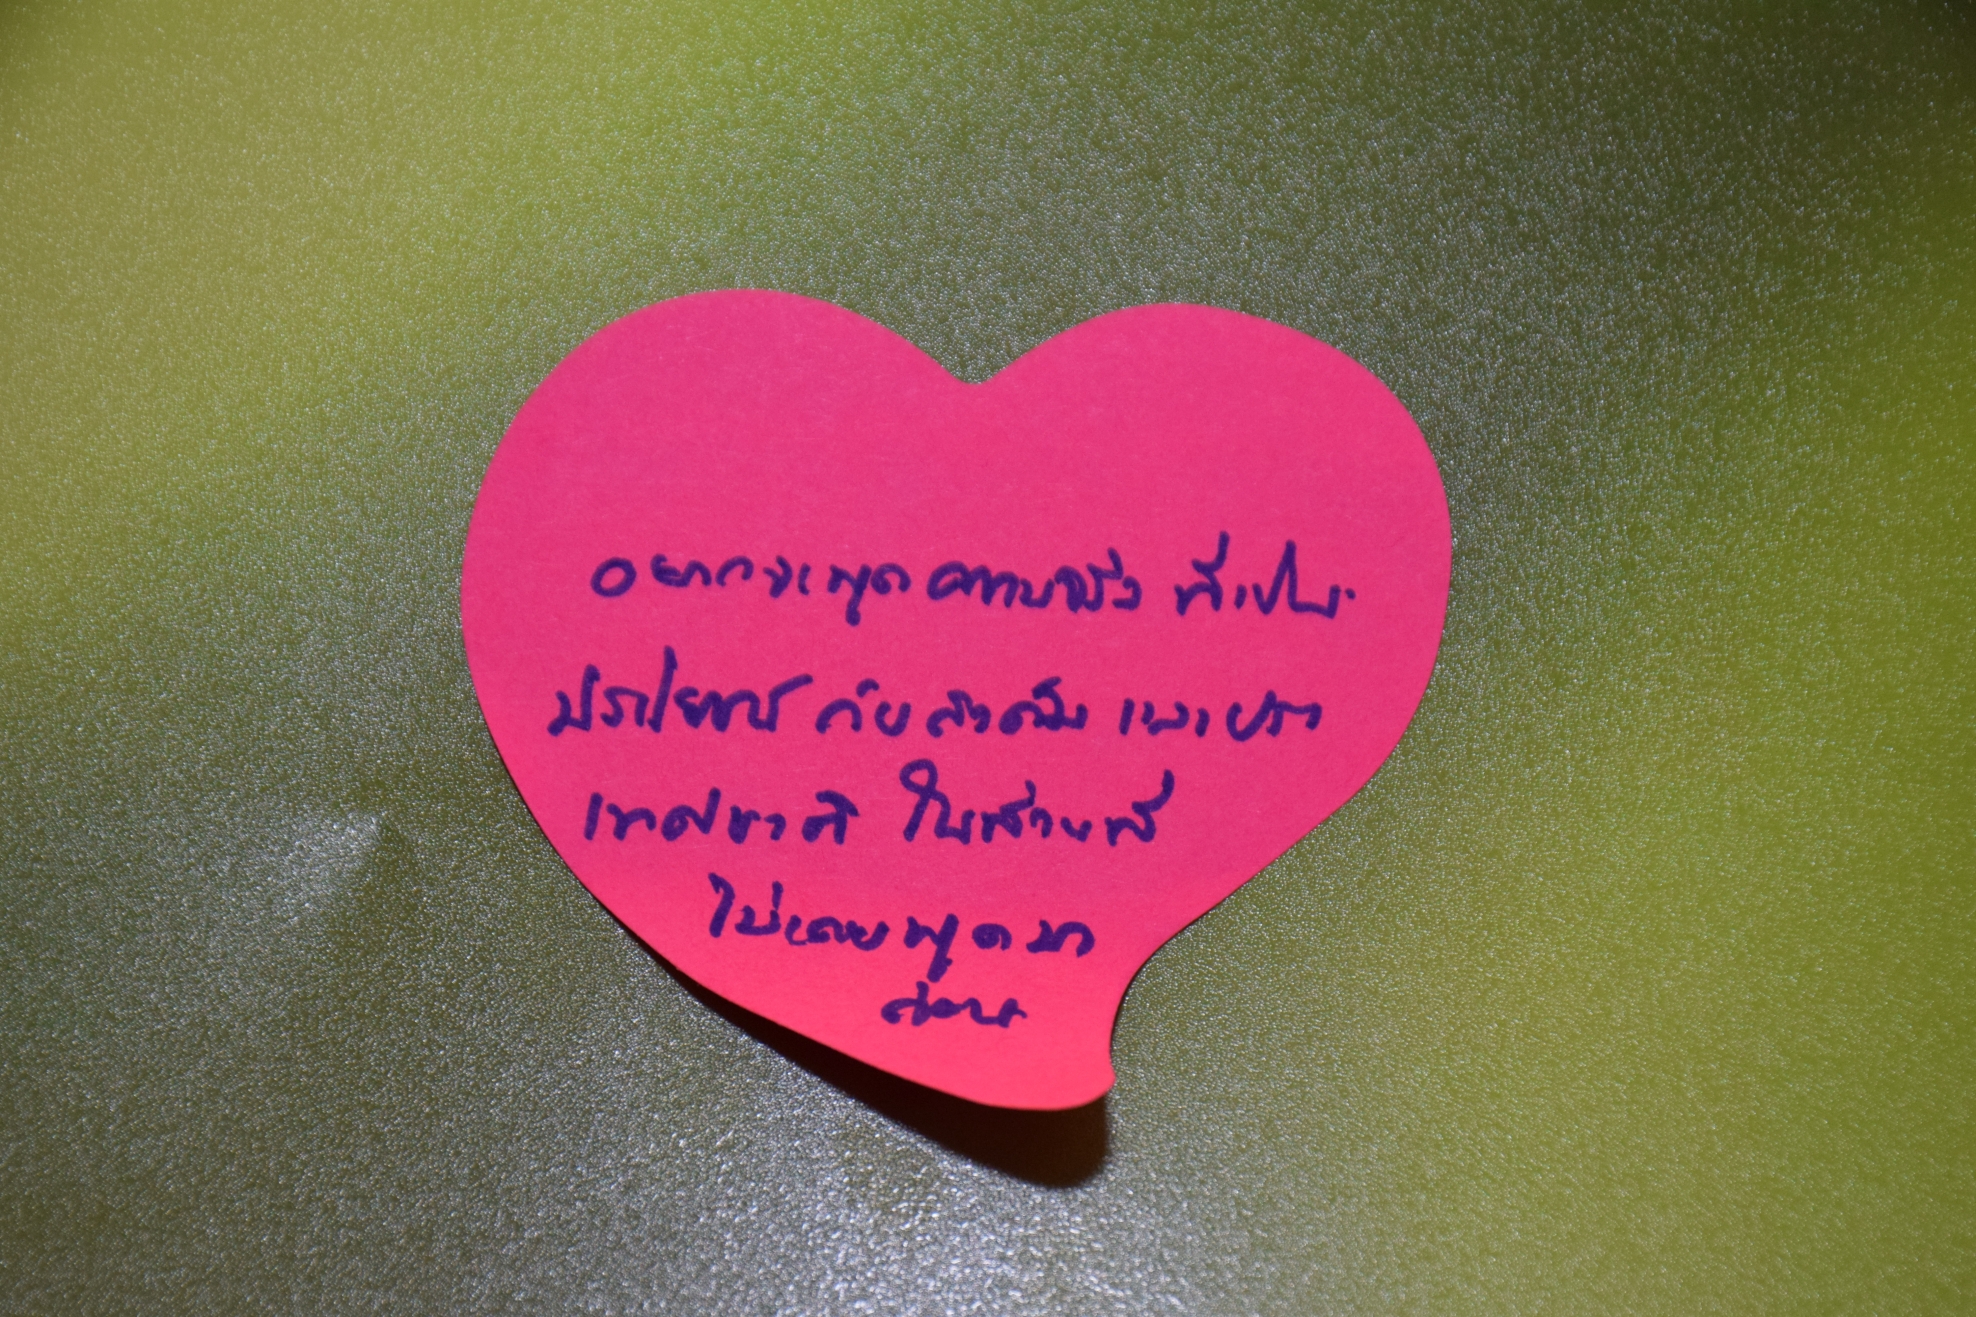 อยากจะพูดความจริง ที่เป็น
ประโยชน์ กับสังคม และประ
เทศชาติ ในส่วนที่
ไม่เคยพูดมา
ก่อน